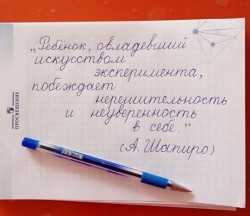 „Ребёнок, овладевший
искусством
эксперимента,
побеждает
нерешительность
и неуверенность
в себе."
(А. Шапиро)
ПРОСВЕЩЕНИЕ